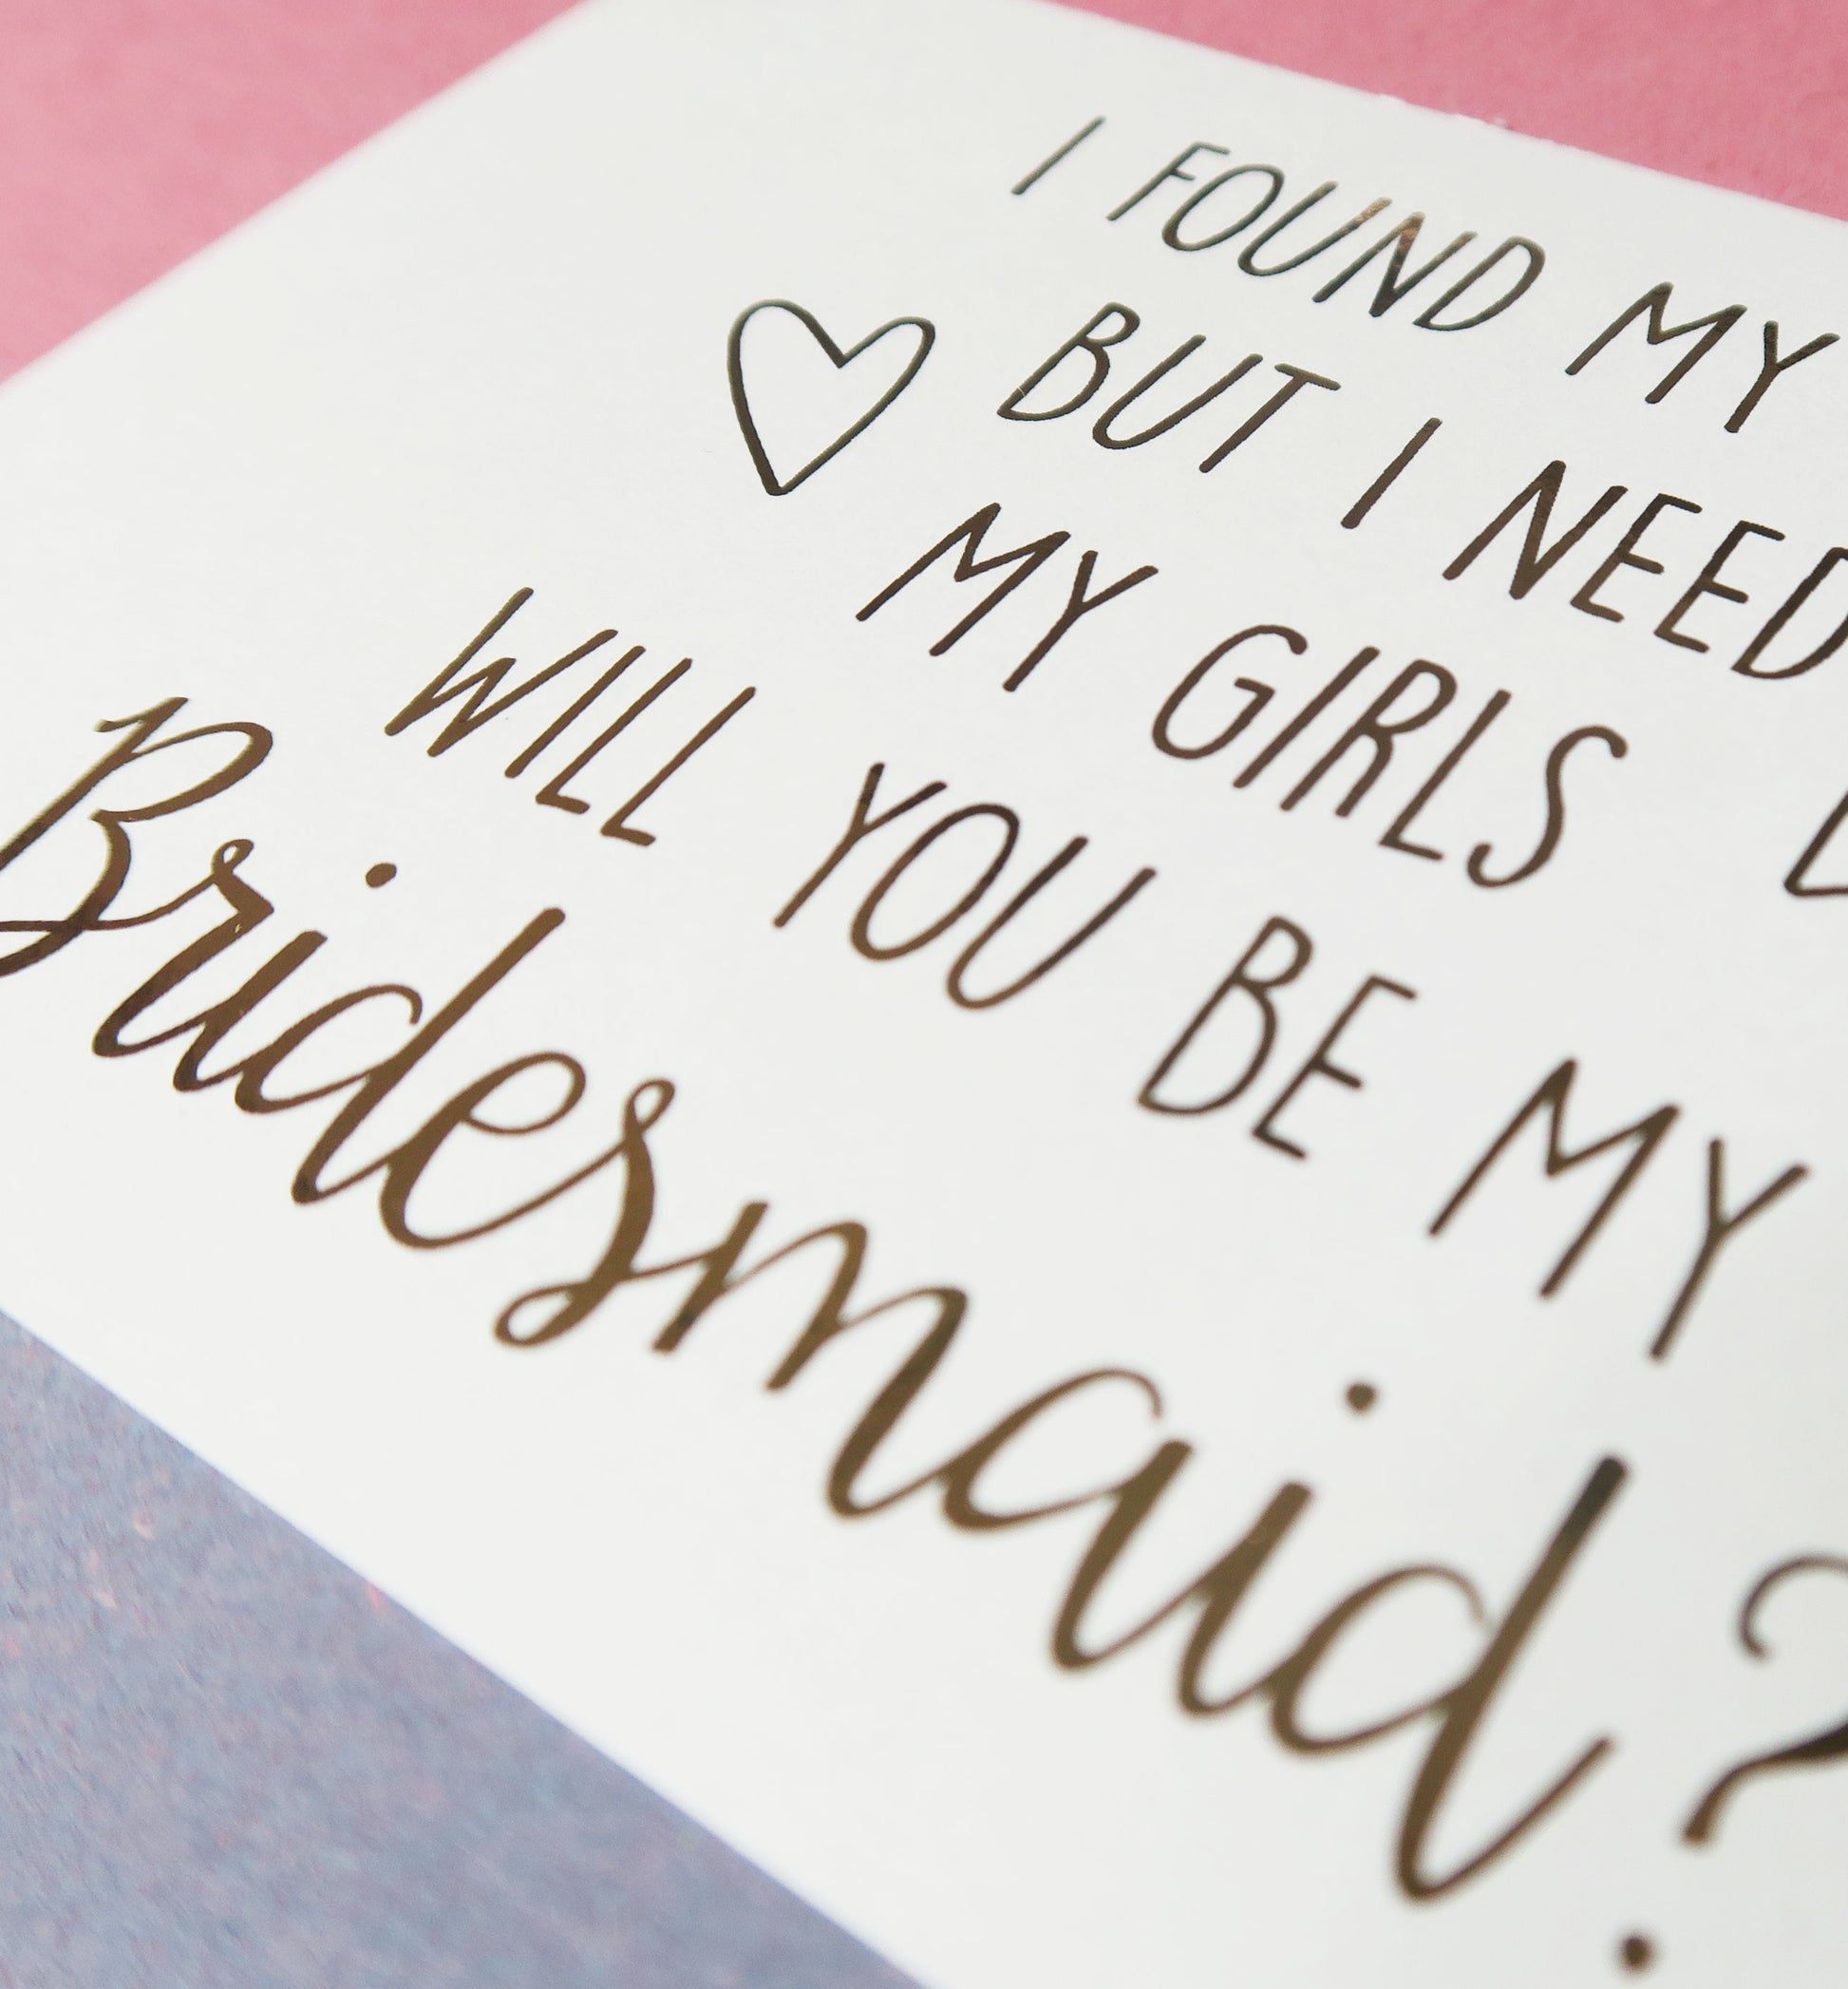 I FOUND MY
BUT I NEED
MY GIRLS
WILL YOU BE MY
Bridesmaid?